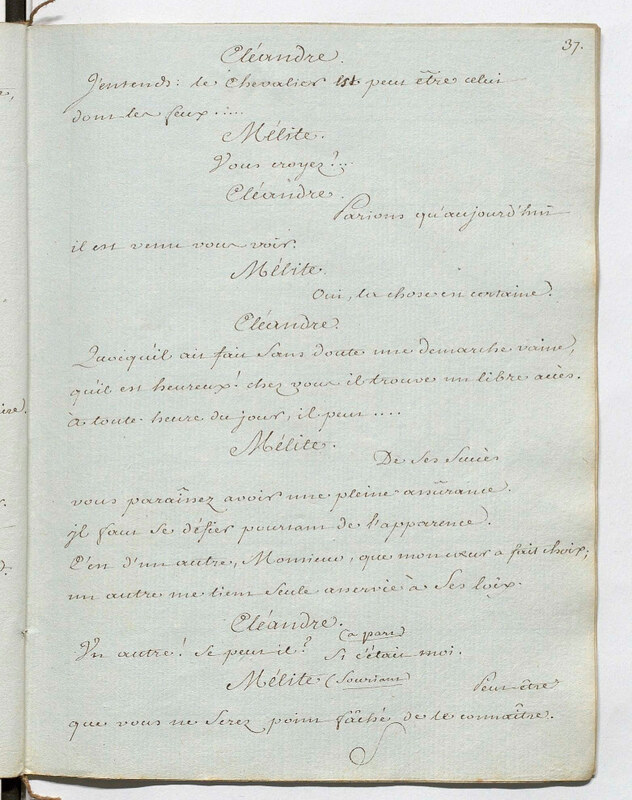 37.
Cléandre.
J'entends: le Chevalier est peut être celui
dont les feux.....
Mélite.
Vous croyez?...
Cléandre.
Parions qu'aujourd'hui
il est venu vous voir.
Mélite.
Oui, la chose est certaine.
Cléandre.
Quoiqu'il ait fait sans doute une demarche vaine,
qu'il est heureux! chez vous il trouve un libre accès.
à toute heure du jour, il peut....
Mélite.
De ses succès
vous paraissez avoir une pleine assurance.
il faut se défier pourtant de l'apparence.
C'est d'un autre, Monsieur, que mon cœur a fait choix;
un autre me tient seule asservie à ses loix.
Cléandre.
Un autre! se peut-il? (a part) Si c'était moi.
Mélite (souriant)
Peut-être
que vous ne serez point fâché de le connaître.